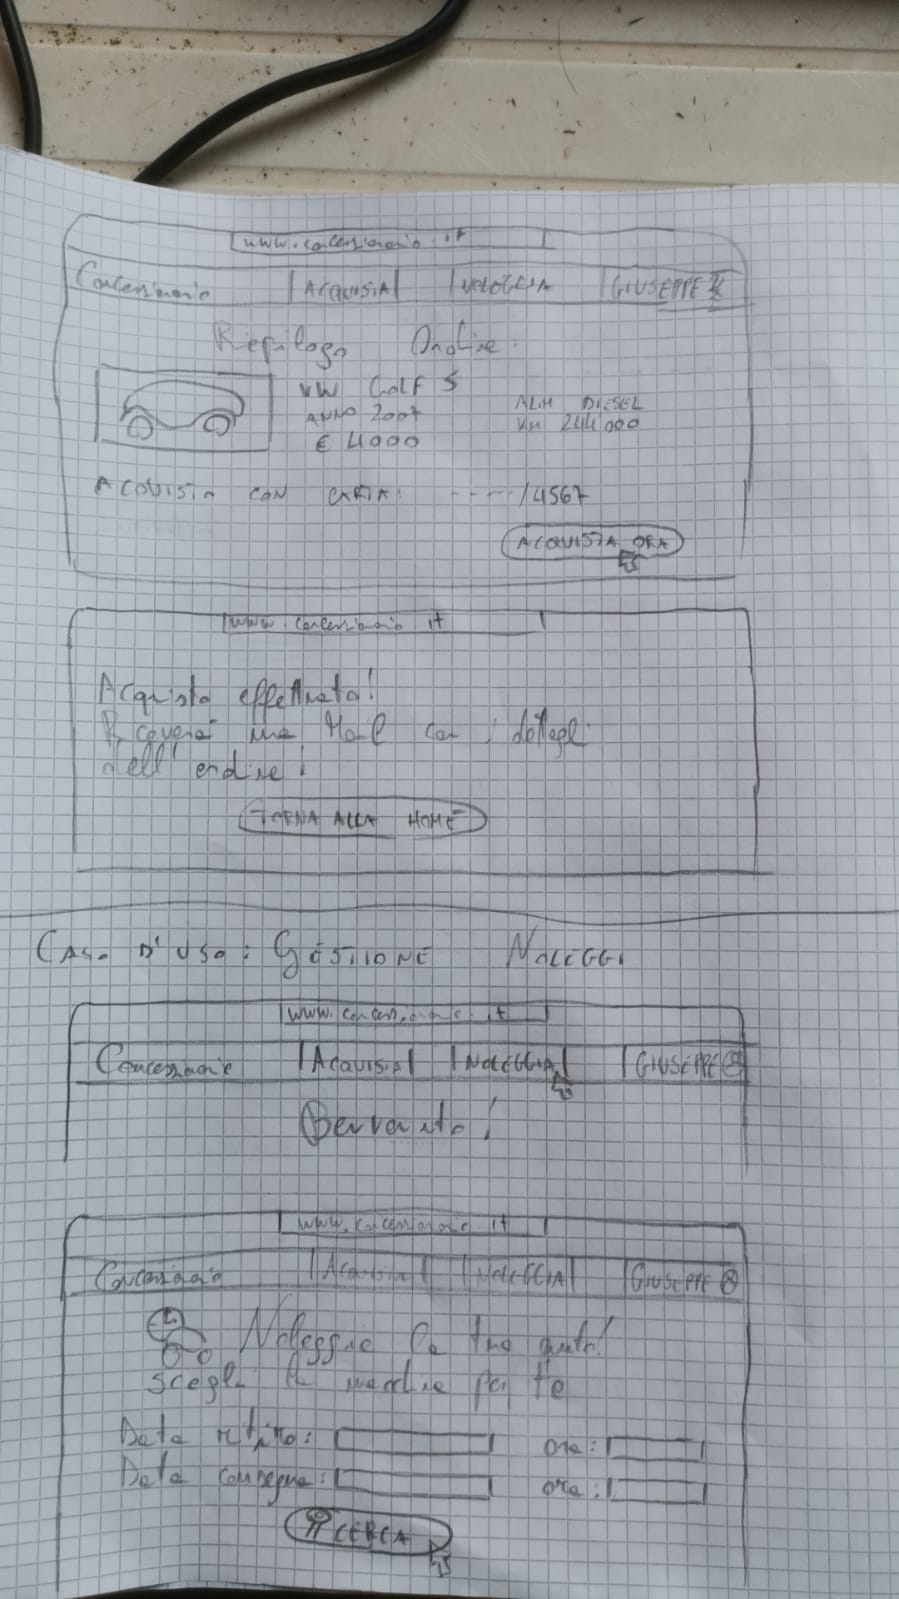 www.concessionario.it
Concessionario ACQUISTA NOLEGGIA GIUSEPPE
Riepilogo Ordine:
VW Golf 5
ANNO 2007 ALIM DIESEL
€ 4000 KM 244000
ACQUISTA CON CARTA: ----/4567
ACQUISTA ORA
www.concessionario.it
Acquisto effettuato!
Riceverai una Mail con i dettagli
dell'ordine!
TORNA ALLA HOME
CASO D'USO: GESTIONE NOLEGGI
www.concessionario.it
Concessionario ACQUISTA NOLEGGIA GIUSEPPE
Benvenuto!
www.concessionario.it
Concessionario Acquista NOLEGGIA GIUSEPPE
Noleggia la tua auto!
scegli la macchina per te
Data ritiro: ora:
Data consegna: ora:
CERCA